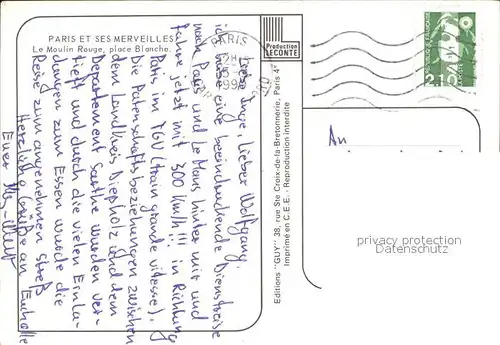 PARIS ET SES MERVEILLES
Le Moulin Rouge, place Blanche.
Liebe Inge, Lieber Wolfgang,
ich habe eine beeindruckende Dienstreise
nach Paris und Le Mans hinter mir und
fahre jetzt mit 300 Km/h!!! in Richtung
Paris im TGV (train grande vitesse).
Die Patenschaftsbeziehungen zwischen
dem Landkreis Diepholz und dem
Departement Sarthe wurden ver-
tieft und durch die vielen Einla-
dungen zum Essen wurde die
Reise zum angenehmen Streß
Herzliche Grüße an Euch alle
Euer
Production
LECONTE
Editions "GUY" 38, rue Ste Croix-de-la-Bretonnerie, Paris 4e
Imprimé en C.E.E. - Reproduction interdite
PARIS
An
privacy protection
AnsichtskartenDlsk.de